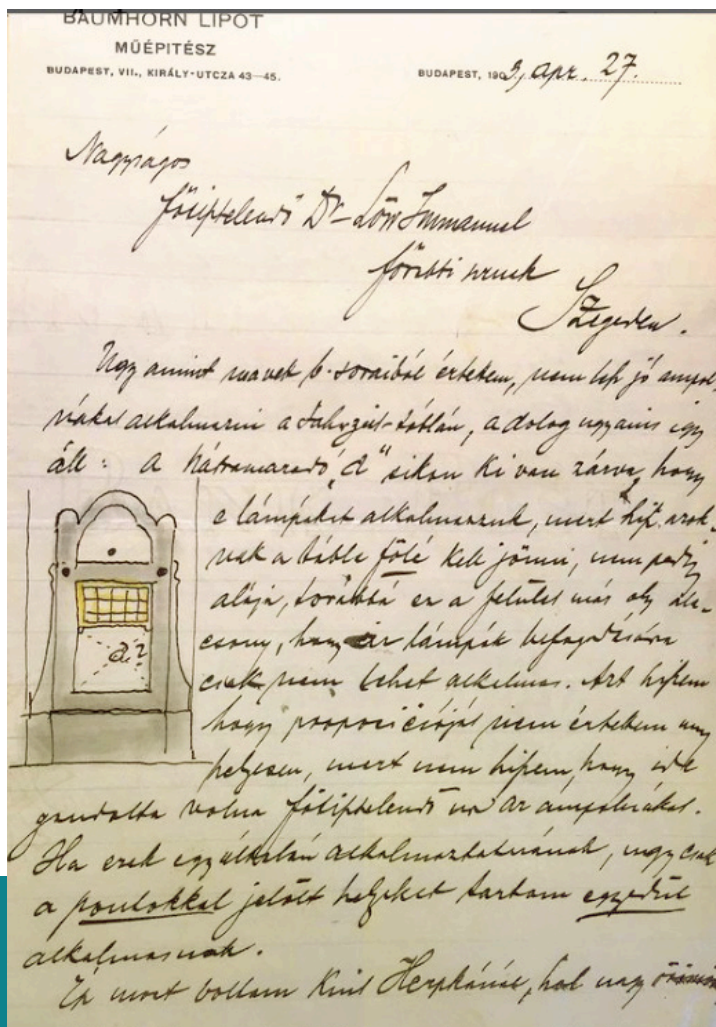 BAUMHORN LIPÓT
MŰÉPITÉSZ
BUDAPEST, VII., KIRÁLY-UTCZA 43—45.
BUDAPEST, 1909, apr. 27.
Nagyságos
főtiztelendő Dr Löw Immanuel
főrabbi urnak
Szegeden.
Ugy amint becses soraiból értem, nem lesz jó
alkalmazni a Jahrzeit-táblán, a dolog ugyanis igy
áll: A hátramaradó „d" sikon ki van zárva, hogy
e lámpákat alkalmazzuk, mert hisz azok-
nak a tábla fölé kell jönni, nem pedig
alája, továbbá ez a felület már oly ala-
csony, hogy lámpák befogadására
csak nem lehet alkalmas. Azt hiszem
hogy propozicióját nem értettem
helyesen, mert nem hiszem, hogy ide
d.?
gondolta volna főtiztelendő ur az ampolnákat.
Ha ezek egyáltalán alkalmaztatnának, ugy csak
a pontokkal jelölt helyeket tartom egyedül
alkalmasnak.
Ép most voltam Herzkánál, hol nagy